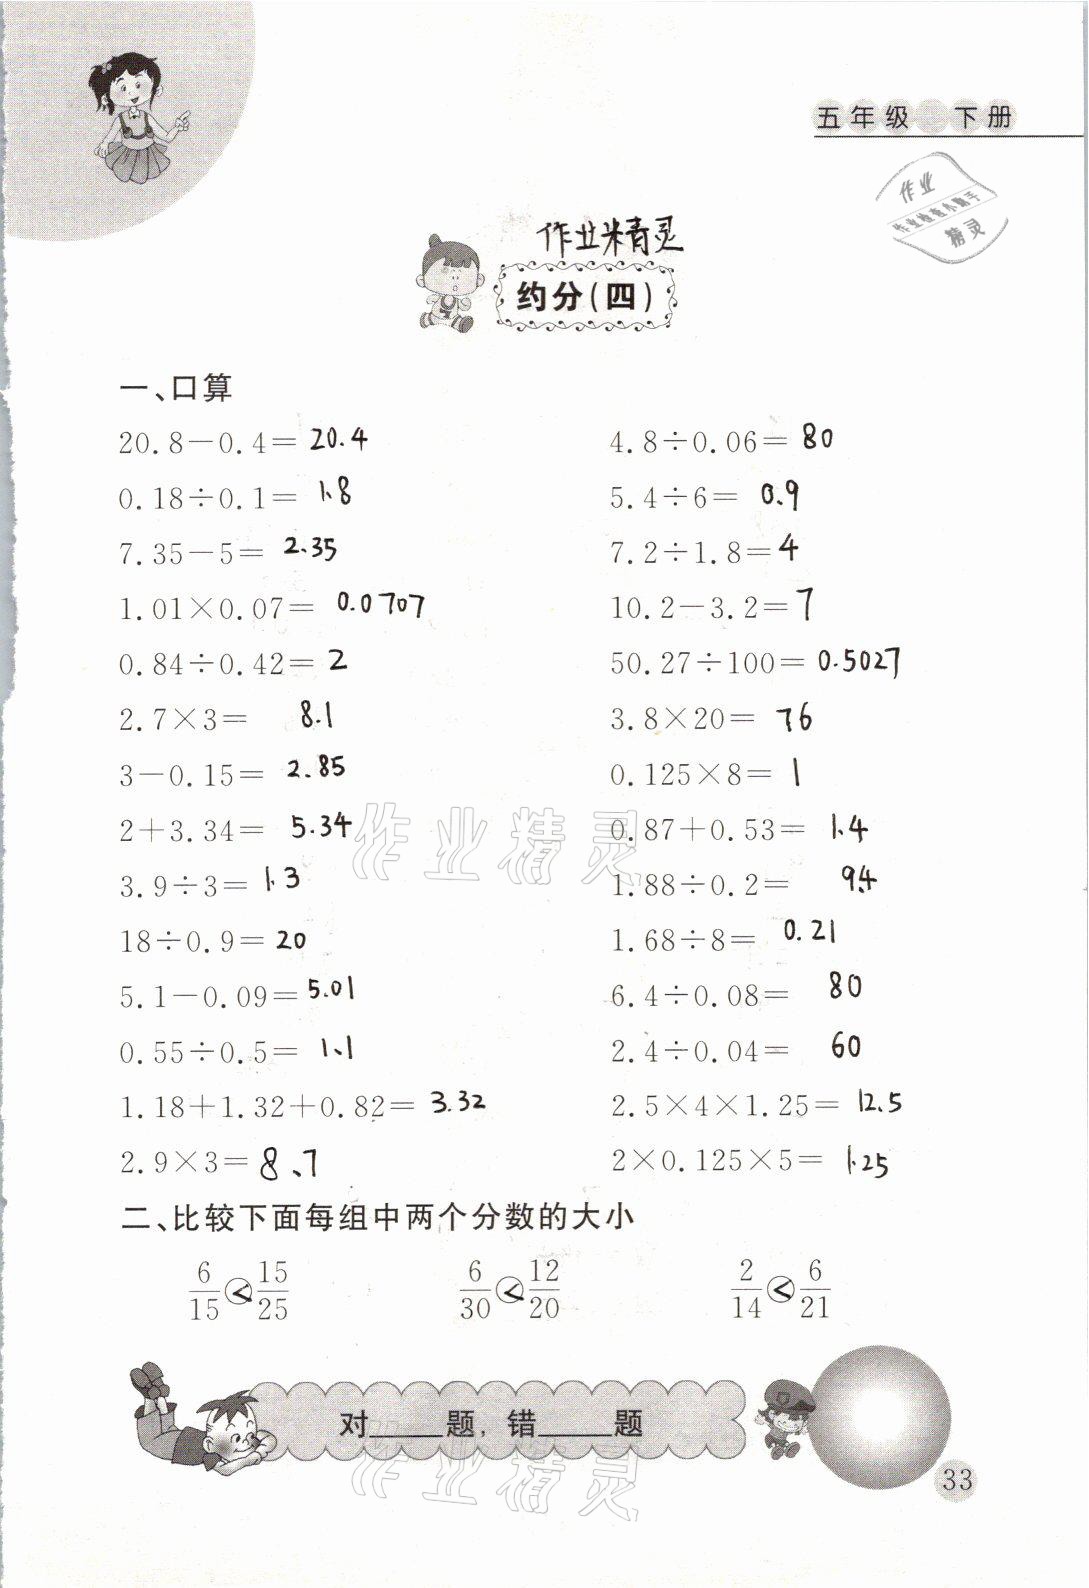 五年级 下册
作业
作业检查小助手
精灵
作业精灵
约分(四)
一、口算
20.8-0.4= 20.4
4.8÷0.06= 80
0.18÷0.1= 1.8
5.4÷6= 0.9
7.35-5= 2.35
7.2÷1.8= 4
1.01×0.07= 0.0707
10.2-3.2= 7
0.84÷0.42= 2
50.27÷100= 0.5027
2.7×3= 8.1
3.8×20= 76
3-0.15= 2.85
0.125×8= 1
2+3.34= 5.34
0.87+0.53= 1.4
3.9÷3= 1.3
1.88÷0.2= 9.4
18÷0.9= 20
1.68÷8= 0.21
5.1-0.09= 5.01
6.4÷0.08= 80
0.55÷0.5= 1.1
2.4÷0.04= 60
1.18+1.32+0.82= 3.32
2.5×4×1.25= 12.5
2.9×3= 8.7
2×0.125×5= 1.25
作业精灵
二、比较下面每组中两个分数的大小
6/15 < 15/25 6/30 < 12/20 2/14 < 6/21
对____题,错____题
作业精灵
33